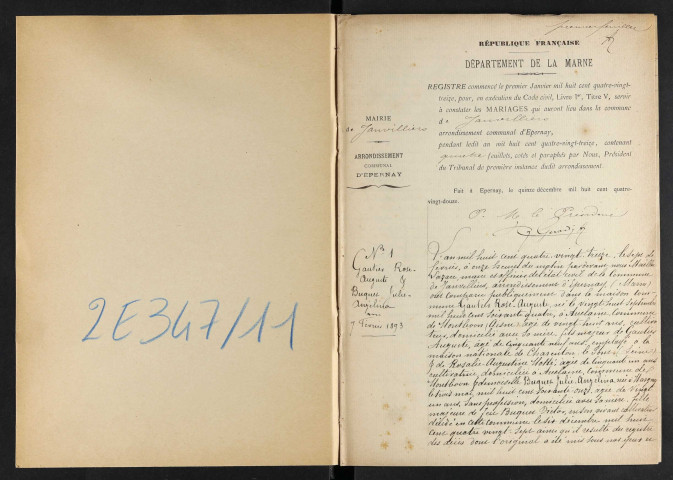 2E347/11
premier feuillet
RÉPUBLIQUE FRANÇAISE
DÉPARTEMENT DE LA MARNE
REGISTRE commencé le premier Janvier mil huit cent quatre-vingt-
treize, pour, en exécution du Code civil, Livre Ier, Titre V, servir
à constater les MARIAGES qui auront lieu dans la commune
de Janvilliers
arrondissement communal d'Epernay,
pendant ledit an mil huit cent quatre-vingt-treize, contenant
quatre feuillets, cotés et paraphés par Nous, Président
du Tribunal de première instance dudit arrondissement.
Fait à Epernay, le quinze décembre mil huit cent quatre-
vingt-douze.
P. M. le Président
MAIRIE
de Janvilliers
ARRONDISSEMENT
COMMUNAL
D'EPERNAY
No 1
Gautier Rose
Auguste &
Buquet Julie
Angelina
7 février 1893
L'an mil huit cent quatre-vingt-treize, le sept de
février, à onze heures du matin pardevant nous
maire et officier de l'état civil de la Commune
de Janvilliers, arrondissement d'Epernay (Marne)
ont comparu publiquement dans la maison com-
mune Gautier Rose Auguste, né le vingt huit Septembre
mil huit cent soixante quatre, à commune
de Monthurel (Aisne) âgé de vingt huit ans, culti-
vateur, domicilié avec sa mère, fils majeur de Gautier
Auguste, âgé de cinquante neuf ans, employé à la
maison nationale de Charenton le (Seine)
& de Rosalie Augustine âgée de cinquante un ans
cultivatrice, domiciliée à commune de
& demoiselle Buquet Julie Angelina née à
le huit mai mil huit cent soixante onze, âgée de vingt
un ans, sans profession, domiciliée avec sa mère, fille
majeure de feu Buquet Victor,
décédé en cette commune le six décembre mil huit
cent quatre vingt-sept ainsi qu'il résulte du registre
des décès dont l'original a été mis sous nos yeux &